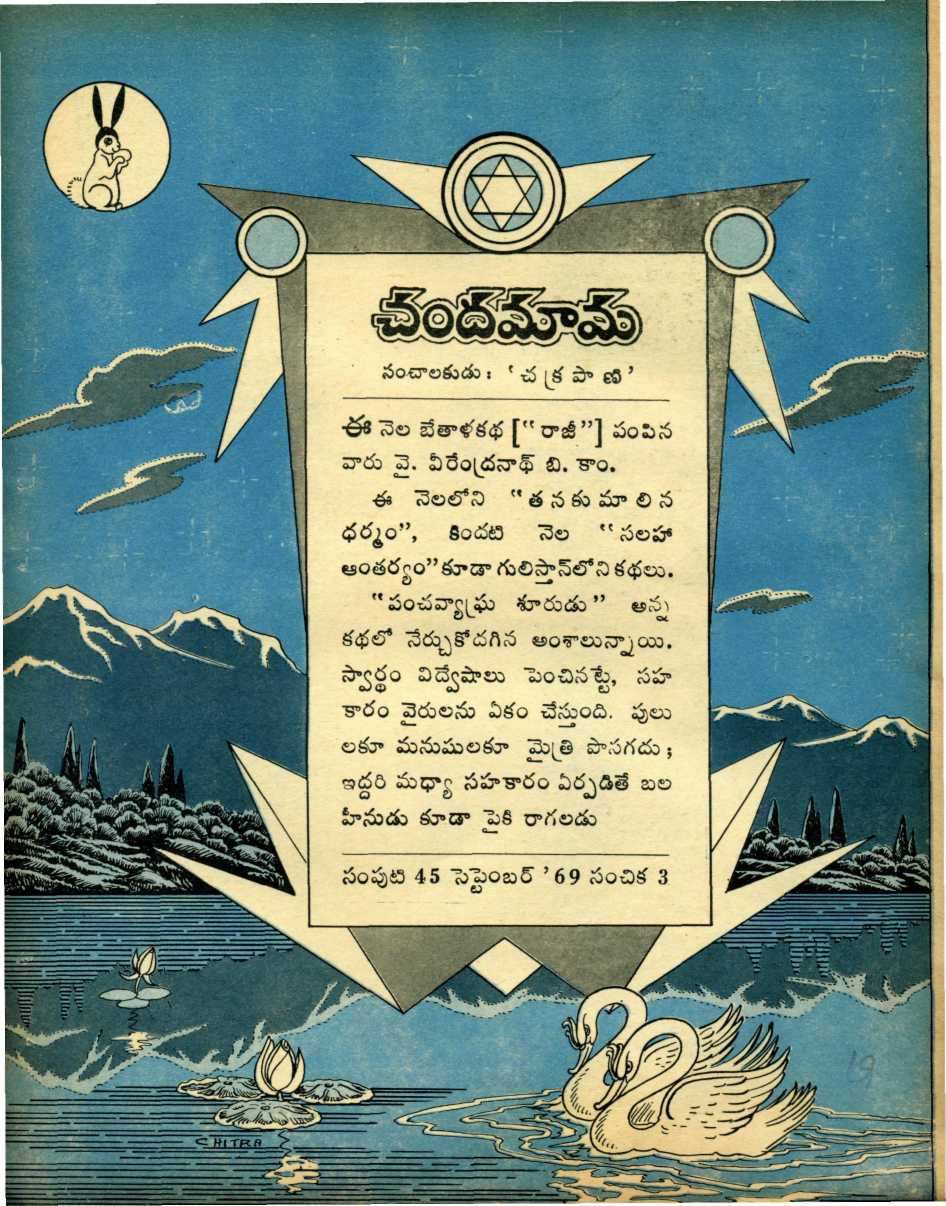 చందమామ
సంచాలకుడు : ‘చక్రపాణి’
ఈ నెల బేతాళకథ [“రాజీ”] పంపిన
వారు వై. వీరేంద్రనాథ్ బి. కాం.
ఈ నెలలోని “తనకుమాలిన
ధర్మం”, కిందటి నెల “సలహా
ఆంతర్యం” కూడా గులిస్తాన్‌లోని కథలు.
“పంచవ్యాఘ్ర శూరుడు” అన్న
కథలో నేర్చుకోదగిన అంశాలున్నాయి.
స్వార్థం విద్వేషాలు పెంచినట్టే, సహ
కారం వైరులను ఏకం చేస్తుంది. పులు
లకూ మనుషులకూ మైత్రి పొసగదు ;
ఇద్దరి మధ్యా సహకారం ఏర్పడితే బల
హీనుడు కూడా పైకి రాగలడు
సంపుటి 45 సెప్టెంబర్ ’69 సంచిక 3
CHITRA
19